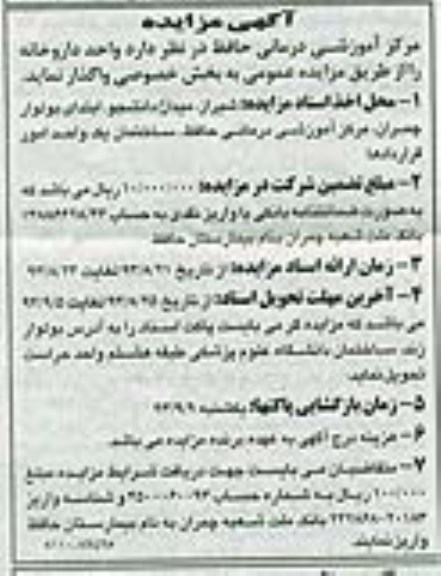 آگهی مزایده
مرکز آموزشی درمانی حافظ در نظر دارد واحد داروخانه
را از طریق مزایده عمومی به بخش خصوصی واگذار نماید.
۱- محل اخذ اسناد مزایده: شیراز، میدان دانشجو، ابتدای بولوار
چمران، مرکز آموزشی درمانی حافظ، ساختمان یک واحد امور
قراردادها
۲- مبلغ تضمین شرکت در مزایده: ۱۰/۰۰۰/۰۰۰ ریال می باشد که
به صورت ضمانتنامه بانکی یا واریز نقدی به حساب
بانک ملت شعبه چمران بنام بیمارستان حافظ
۳- زمان ارائه اسناد مزایده: از تاریخ ۹۳/۸/۲۱ لغایت ۹۳/۸/۲۴
۴- آخرین مهلت تحویل اسناد: از تاریخ ۹۳/۸/۲۵ لغایت ۹۳/۹/۵
می باشد که مزایده گر می بایست پاکت اسناد را به آدرس بولوار
زند، ساختمان دانشگاه علوم پزشکی طبقه هشتم واحد حراست
تحویل نماید.
۵- زمان بازگشایی پاکتها: یکشنبه ۹۳/۹/۹
۶- هزینه درج آگهی به عهده برنده مزایده می باشد.
۷- متقاضیان می بایست جهت دریافت شرایط مزایده مبلغ
۱۰۰/۰۰۰ ریال به شماره حساب و شناسه واریز
بانک ملت شعبه چمران به نام بیمارستان حافظ
واریز نمایند.